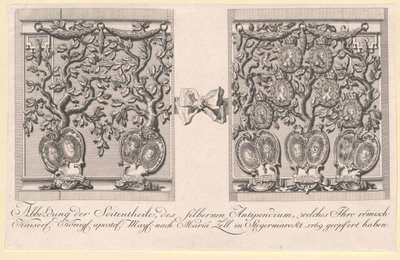 Abbildung der Seitentheile, des silbernen Antipendium, welches Ihro römisch
Kaiserl: Königl: apostol: Mayst: nach Maria Zell in Steyermarckt 1769 geopfert haben.